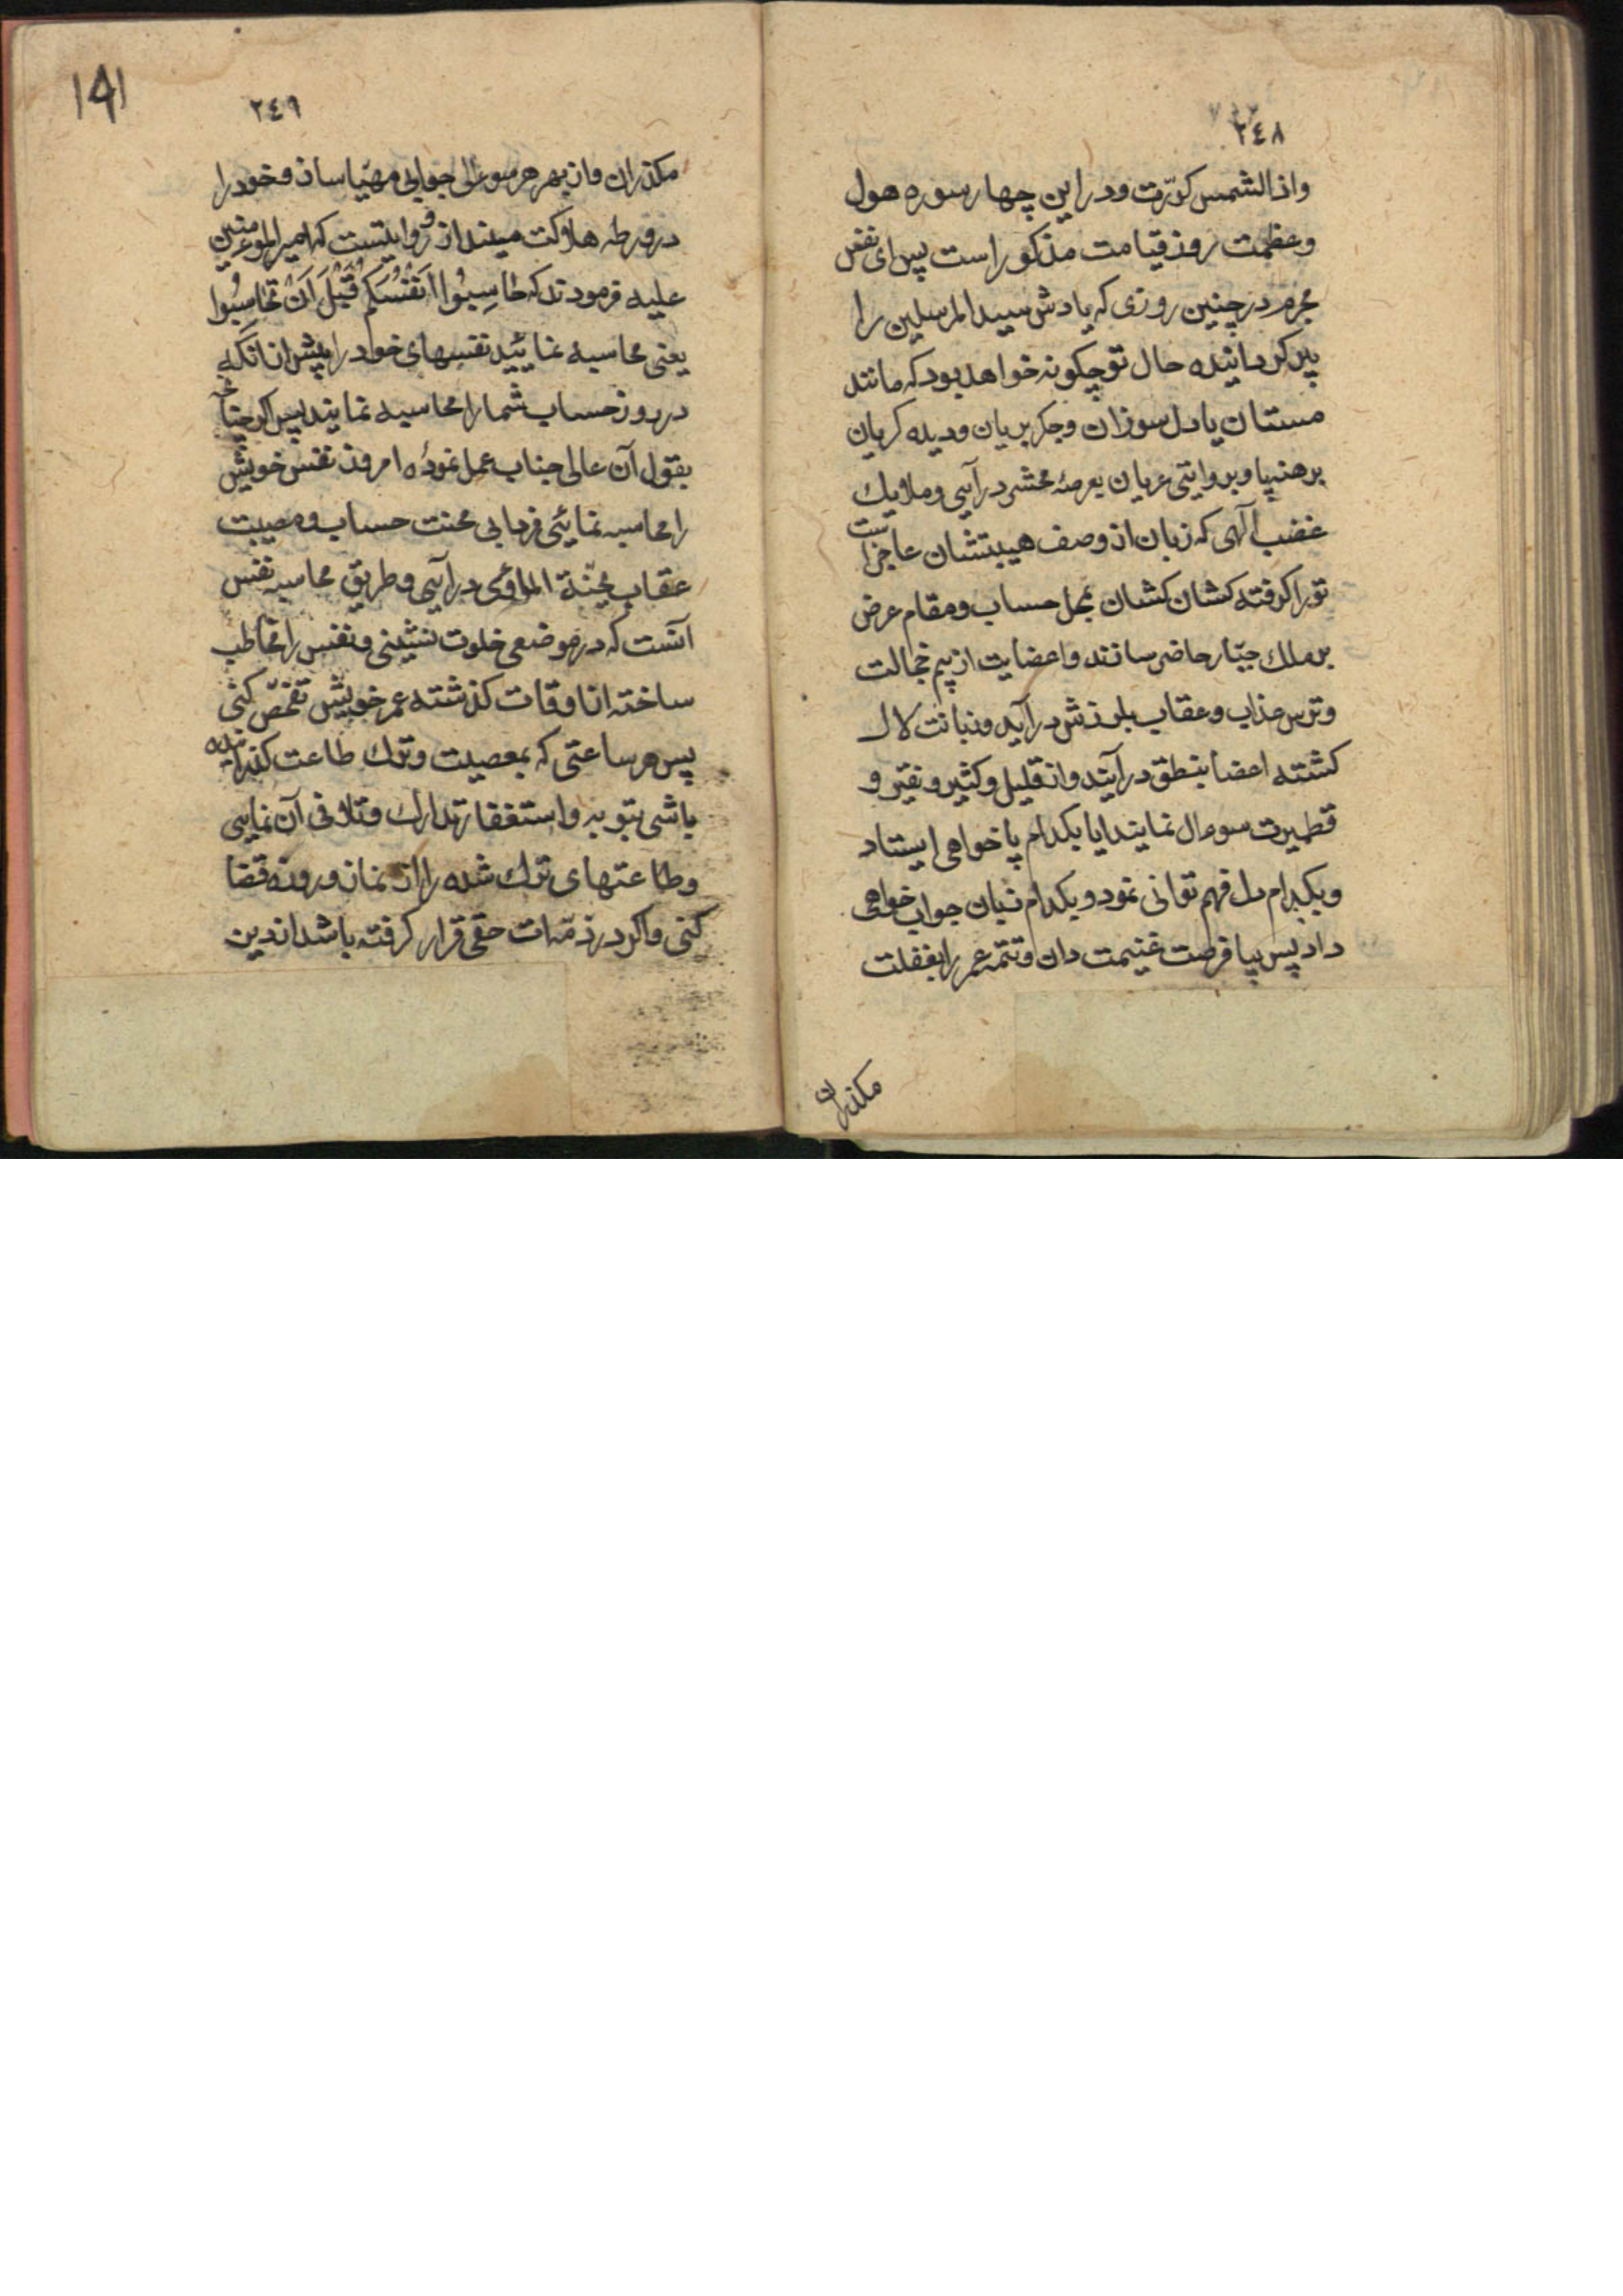 ٢٤٨
واذا الشمس کوّرت و در این چهار سوره هول
و عظمت روز قیامت مذکور است پس ای نفس
مجرم در چنین روزی که یادش سید المرسلین را
پیر کردانیده حال تو چکونه خواهد بود که مانند
مستان یا دل سوزان و جکر بریان و دیده کریان
برهنه پا و بروایتی عریان بعرصهٔ محشر درآیی و ملایک
غضب آلهی که زبان از وصف هیبتشان عاجز است
تو را کرفته کشان کشان بمحل حساب و مقام عرض
بر ملك جبّار حاضر سازند و اعضایت از بیم خجالت
و ترس عذاب و عقاب بلرزش درآید و زبانت لال
کشته اعضا بنطق درآیند و از قلیل و کثیر و نقیر و
قطمیرت سوءال نمایند ایا بکدام پا خواهی ایستاد
و بکدام دل فهم توانی نمود و بکدام زبان جواب خواهی
داد پس بیا فرصت غنیمت دان و تتمه عمر را بغفلت
مکذران
١٩١
٢٤٩
مکذران و از بهر هر سوءالی جوابی مهیّا ساز و خود را
در ورطه هلاکت مینداز و روایتست که امیر الموءمنین
علیه فرمودند که حاسِبُوا اَنفُسَکُم قَبلَ اَن تُحاسَبُوا
یعنی محاسبه نمایید نفسهای خود را پیش از آنکه
در روز حساب شما را محاسبه نمایند پس اکر چنانچه
بقول آن عالی جناب عمل نمودٔه امروز نفس خویش
را محاسبه نمایٔی فردا بی محنت حساب و مصیبت
عقاب بجنّة الماوٰی درآیی و طریق محاسبه نفس
آنست که در موضعی خلوت نشینی و نفس را مخاطب
ساخته از اوقات کذشته عمر خویش تفحّص کنی
پس هر ساعتی که بمعصیت و ترك طاعت کذرانیده
باشی بتوبه و استغفار تدارك و تلافی آن نمایی
و طاعتهای ترك شده را از نماز و روزه قضا
کنی و اکر در ذمّه ات حقی قرار کرفته باشد از دین